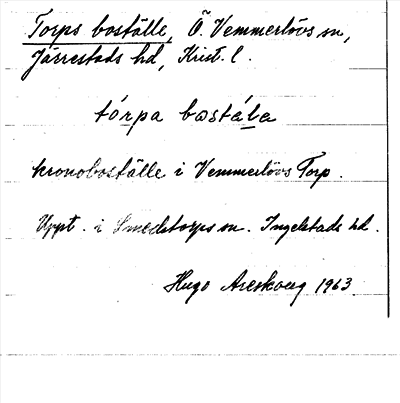 Torps boställe, Ö. Vemmerlövs sn,
Järrestads hd, Krist. l.
tórpa bωstála
kronoboställe i Vemmerlövs Torp.
Uppt. i Smedstorps sn. Ingelstads hd.
Hugo Areskoug 1963